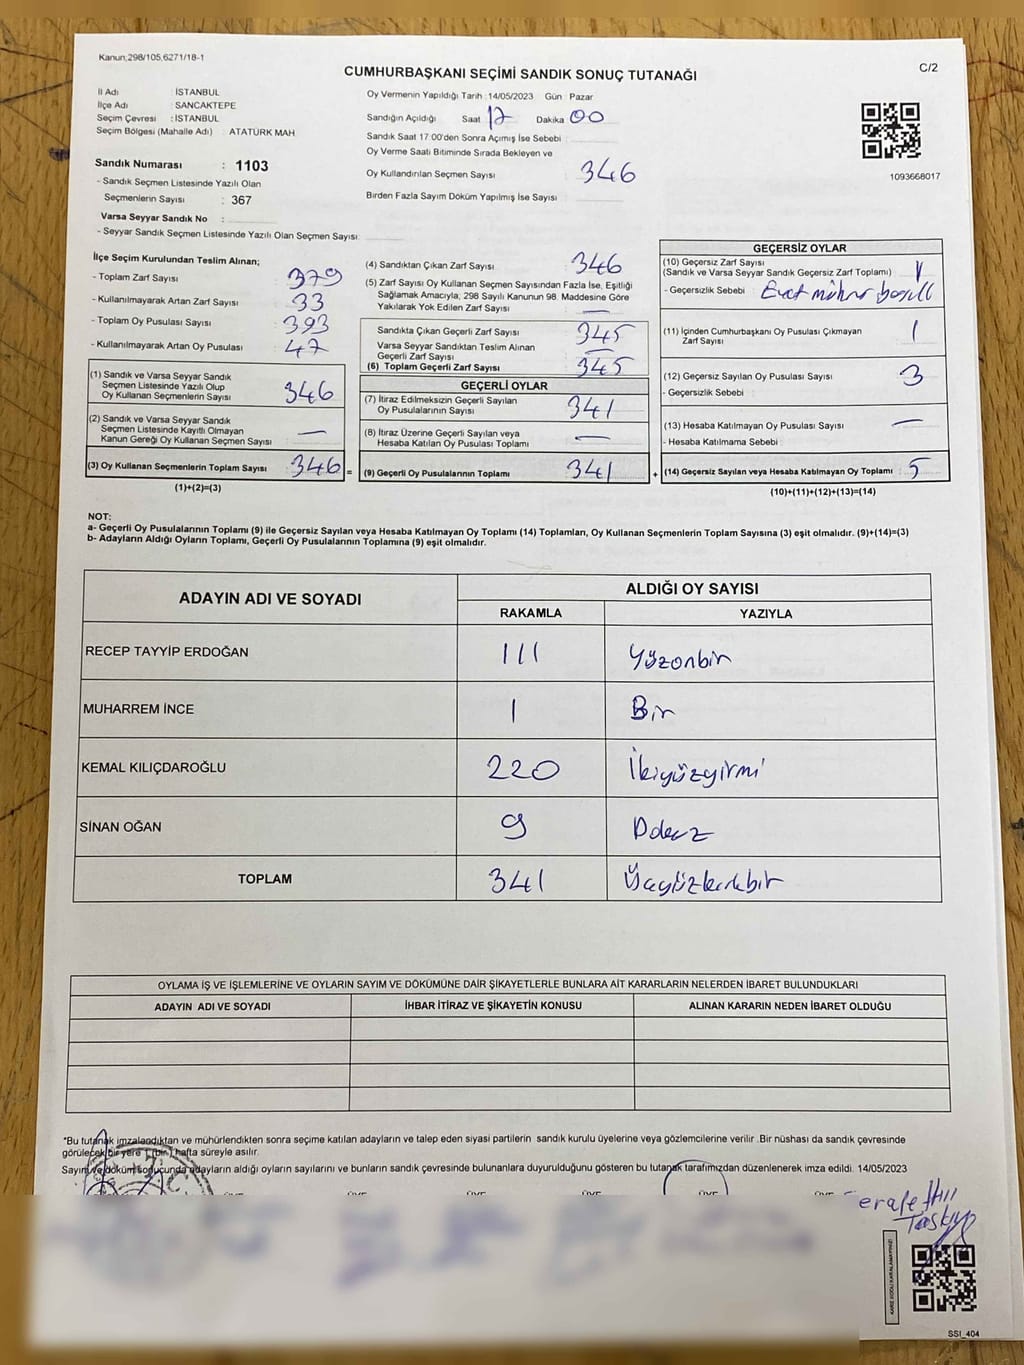 Kanun;298/105,6271/18-1
C/2
CUMHURBAŞKANI SEÇİMİ SANDIK SONUÇ TUTANAĞI
İl Adı : İSTANBUL
İlçe Adı : SANCAKTEPE
Seçim Çevresi : İSTANBUL
Seçim Bölgesi (Mahalle Adı) : ATATÜRK MAH
Sandık Numarası : 1103
- Sandık Seçmen Listesinde Yazılı Olan
Seçmenlerin Sayısı : 367
Varsa Seyyar Sandık No :
- Seyyar Sandık Seçmen Listesinde Yazılı Olan Seçmen Sayısı:
Oy Vermenin Yapıldığı Tarih : 14/05/2023 Gün : Pazar
Sandığın Açıldığı Saat 17 Dakika 00
Sandık Saat 17:00'den Sonra Açımış İse Sebebi :
Oy Verme Saati Bitiminde Sırada Bekleyen ve
Oy Kullandırılan Seçmen Sayısı 346
Birden Fazla Sayım Döküm Yapılmış İse Sayısı :
1093668017
İlçe Seçim Kurulundan Teslim Alınan;
- Toplam Zarf Sayısı : 379
- Kullanılmayarak Artan Zarf Sayısı : 33
- Toplam Oy Pusulası Sayısı : 393
- Kullanılmayarak Artan Oy Pusulası : 47
(1) Sandık ve Varsa Seyyar Sandık
Seçmen Listesinde Yazılı Olup
Oy Kullanan Seçmenlerin Sayısı 346
(2) Sandık ve Varsa Seyyar Sandık
Seçmen Listesinde Kayıtlı Olmayan
Kanun Gereği Oy Kullanan Seçmen Sayısı —
(3) Oy Kullanan Seçmenlerin Toplam Sayısı 346 =
(1)+(2)=(3)
(4) Sandıktan Çıkan Zarf Sayısı 346
(5) Zarf Sayısı Oy Kullanan Seçmen Sayısından Fazla İse, Eşitliği
Sağlamak Amacıyla; 298 Sayılı Kanunun 98. Maddesine Göre
Yakılarak Yok Edilen Zarf Sayısı : —
Sandıkta Çıkan Geçerli Zarf Sayısı 345
Varsa Seyyar Sandıktan Teslim Alınan
Geçerli Zarf Sayısı —
(6) Toplam Geçerli Zarf Sayısı 345
GEÇERLİ OYLAR
(7) İtiraz Edilmeksizin Geçerli Sayılan
Oy Pusulalarının Sayısı 341
(8) İtiraz Üzerine Geçerli Sayılan veya
Hesaba Katılan Oy Pusulası Toplamı —
(9) Geçerli Oy Pusulalarının Toplamı 341 +
GEÇERSİZ OYLAR
(10) Geçersiz Zarf Sayısı
(Sandık ve Varsa Seyyar Sandık Geçersiz Zarf Toplamı) : 1
- Geçersizlik Sebebi : Evet mührü
(11) İçinden Cumhurbaşkanı Oy Pusulası Çıkmayan
Zarf Sayısı 1
(12) Geçersiz Sayılan Oy Pusulası Sayısı 3
- Geçersizlik Sebebi :
(13) Hesaba Katılmayan Oy Pusulası Sayısı —
- Hesaba Katılmama Sebebi :
(14) Geçersiz Sayılan veya Hesaba Katılmayan Oy Toplamı 5
(10)+(11)+(12)+(13)=(14)
NOT:
a- Geçerli Oy Pusulalarının Toplamı (9) ile Geçersiz Sayılan veya Hesaba Katılmayan Oy Toplamı (14) Toplamları, Oy Kullanan Seçmenlerin Toplam Sayısına (3) eşit olmalıdır. (9)+(14)=(3)
b- Adayların Aldığı Oyların Toplamı, Geçerli Oy Pusulalarının Toplamına (9) eşit olmalıdır.
ADAYIN ADI VE SOYADI
ALDIĞI OY SAYISI
RAKAMLA YAZIYLA
RECEP TAYYİP ERDOĞAN 111 Yüzonbir
MUHARREM İNCE 1 Bir
KEMAL KILIÇDAROĞLU 220 İkiyüzyirmi
SİNAN OĞAN 9
TOPLAM 341
OYLAMA İŞ VE İŞLEMLERİNE VE OYLARIN SAYIM VE DÖKÜMÜNE DAİR ŞİKAYETLERLE BUNLARA AİT KARARLARIN NELERDEN İBARET BULUNDUKLARI
ADAYIN ADI VE SOYADI İHBAR İTİRAZ VE ŞİKAYETİN KONUSU ALINAN KARARIN NEDEN İBARET OLDUĞU
*Bu tutanak imzalandıktan ve mühürlendikten sonra seçime katılan adayların ve talep eden siyasi partilerin sandık kurulu üyelerine veya gözlemcilerine verilir .Bir nüshası da sandık çevresinde
görülecek bir yere 1(bir) hafta süreyle asılır.
Sayım ve döküm sonucunda adayların aldığı oyların sayılarını ve bunların sandık çevresinde bulunanlara duyurulduğunu gösteren bu tutanak tarafımızdan düzenlenerek imza edildi. 14/05/2023
ÜYE ÜYE ÜYE ÜYE ÜYE ÜYE
KARE KODU KARALAMAYINIZ!
SSİ_404